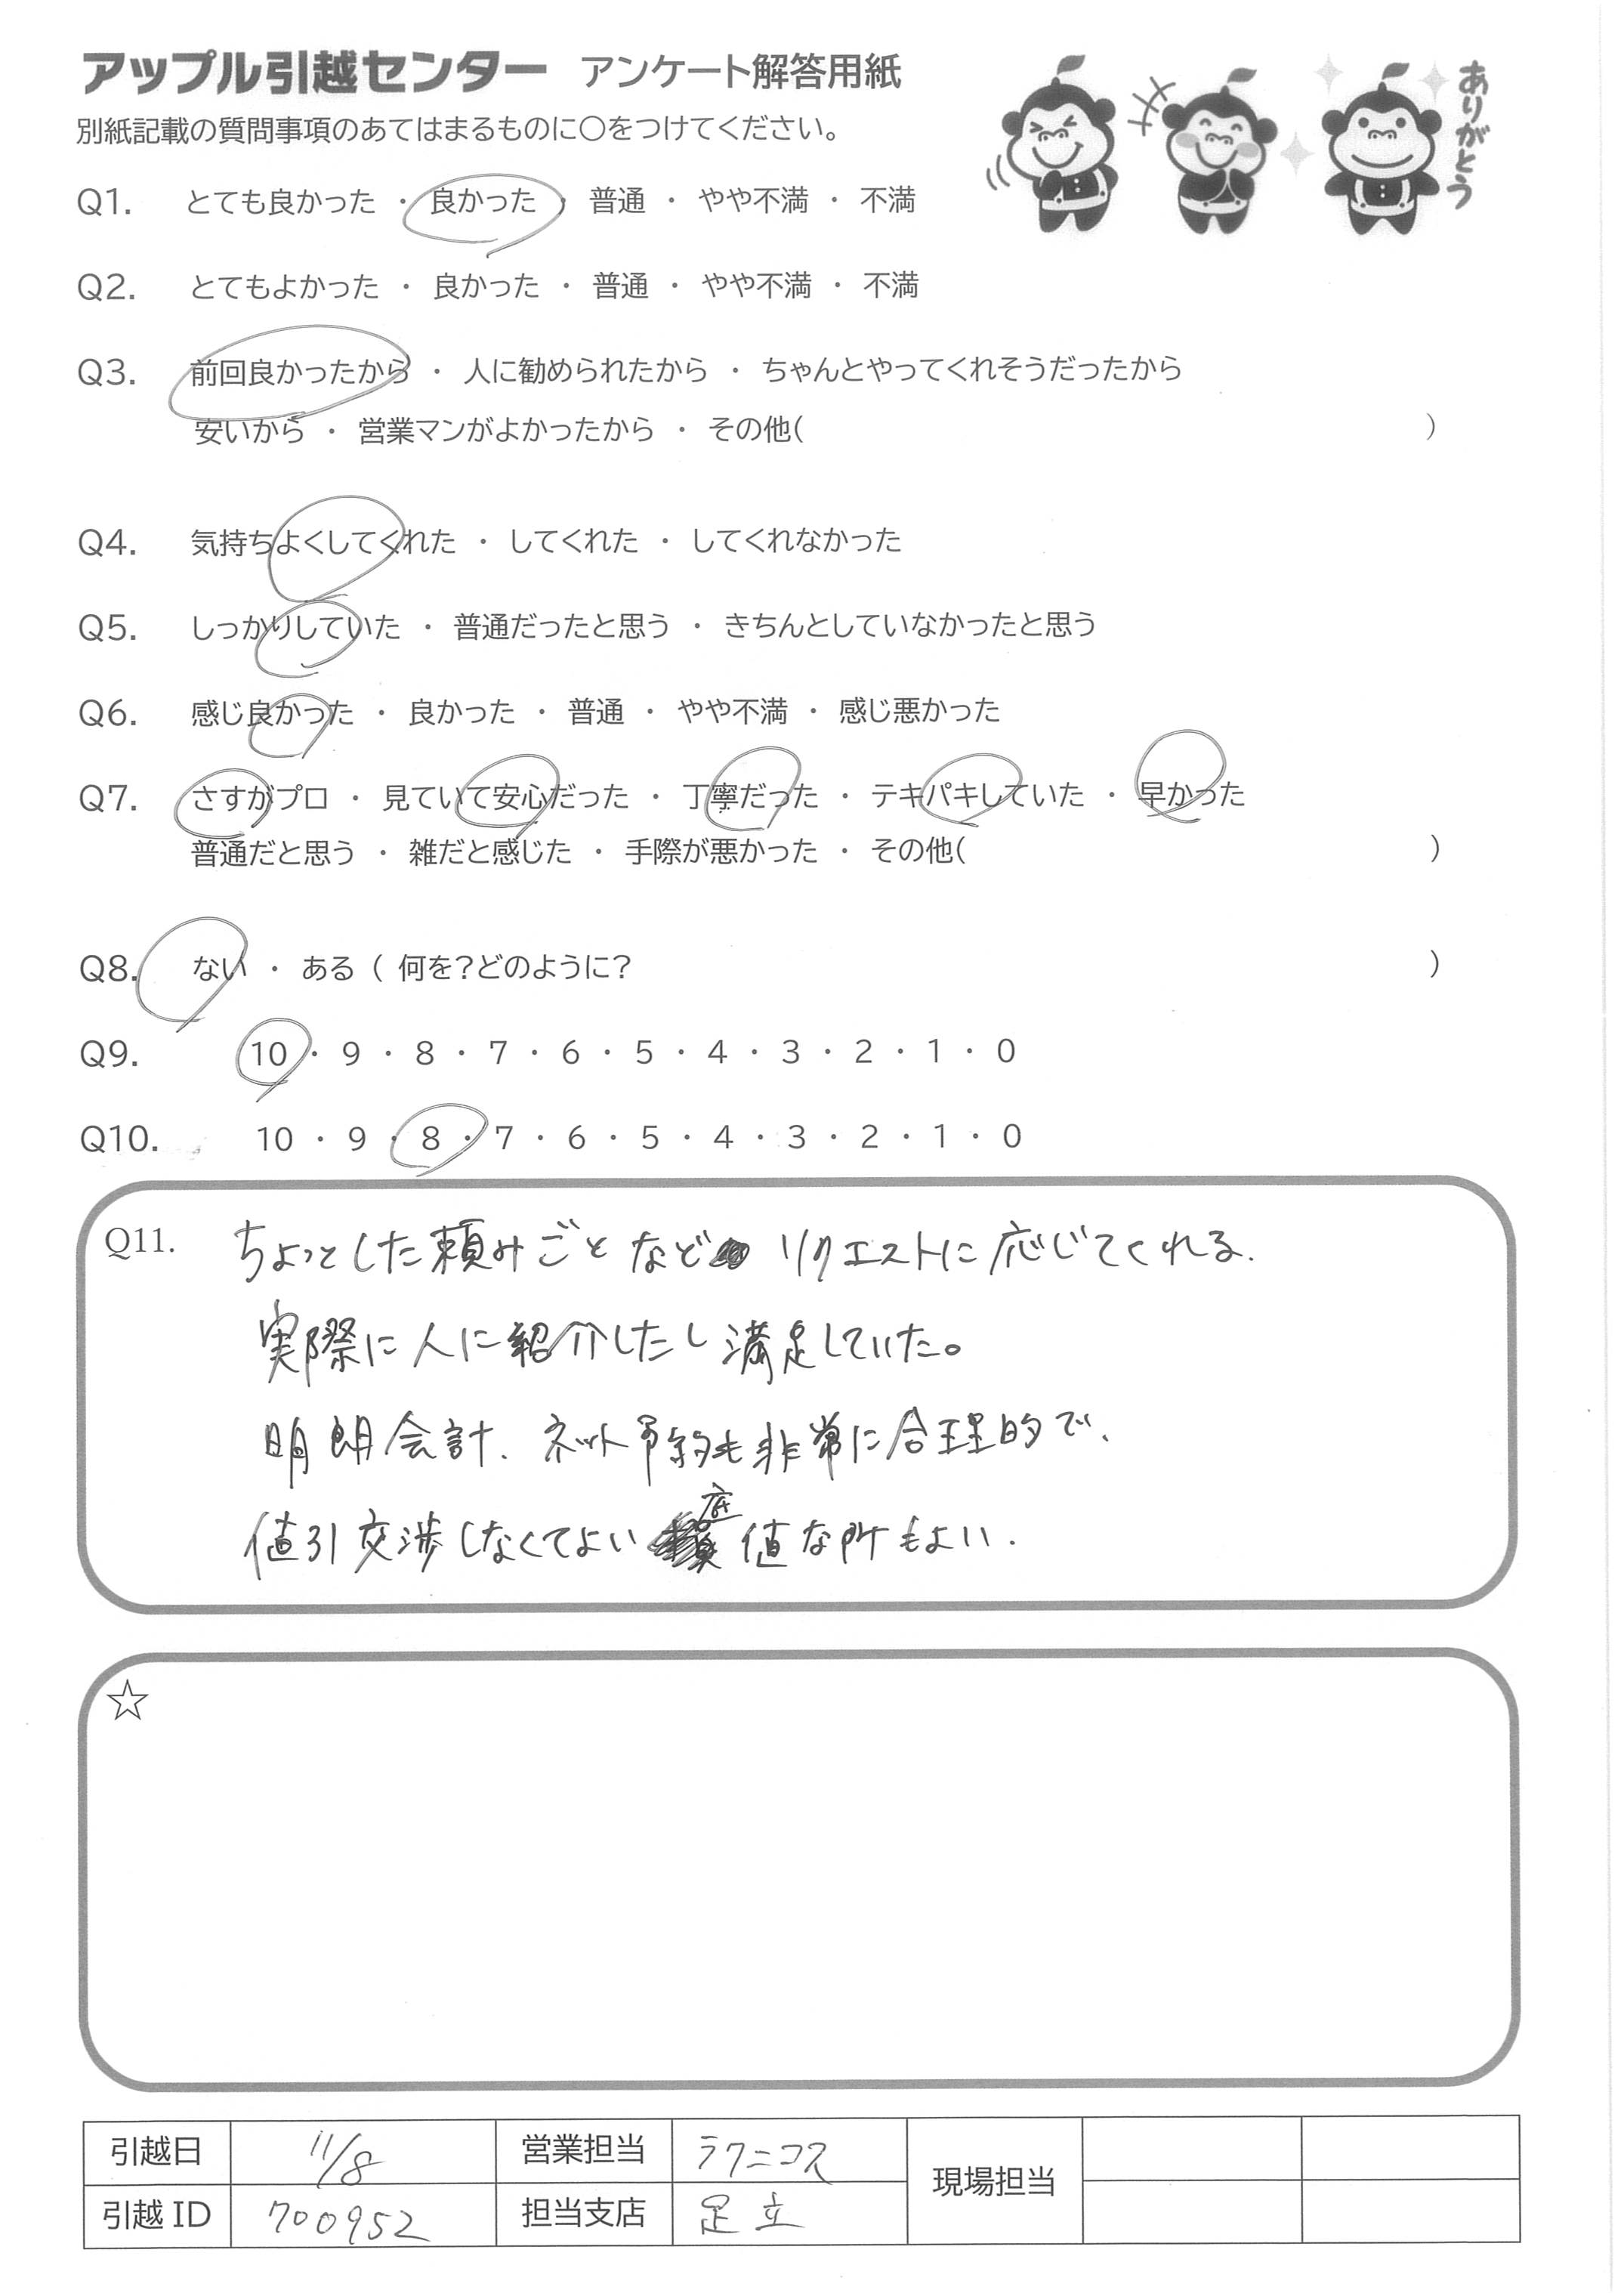 アップル引越センター アンケート解答用紙
ありがとう
別紙記載の質問事項のあてはまるものに○をつけてください。
Q1. とても良かった ・ 良かった ・ 普通 ・ やや不満 ・ 不満
Q2. とてもよかった ・ 良かった ・ 普通 ・ やや不満 ・ 不満
Q3. 前回良かったから ・ 人に勧められたから ・ ちゃんとやってくれそうだったから
安いから ・ 営業マンがよかったから ・ その他( )
Q4. 気持ちよくしてくれた ・ してくれた ・ してくれなかった
Q5. しっかりしていた ・ 普通だったと思う ・ きちんとしていなかったと思う
Q6. 感じ良かった ・ 良かった ・ 普通 ・ やや不満 ・ 感じ悪かった
Q7. さすがプロ ・ 見ていて安心だった ・ 丁寧だった ・ テキパキしていた ・ 早かった
普通だと思う ・ 雑だと感じた ・ 手際が悪かった ・ その他( )
Q8. ない ・ ある ( 何を?どのように? )
Q9. 10 ・ 9 ・ 8 ・ 7 ・ 6 ・ 5 ・ 4 ・ 3 ・ 2 ・ 1 ・ 0
Q10. 10 ・ 9 ・ 8 ・ 7 ・ 6 ・ 5 ・ 4 ・ 3 ・ 2 ・ 1 ・ 0
Q11. ちょっとした頼みごとなど リクエストに応じてくれる.
実際に人に紹介したし満足していた。
明朗会計、ネット予約も非常に合理的で、
値引交渉しなくてよい 底値な所もよい.
☆
引越日 11/8 営業担当 ラクニコス 現場担当
引越ID 700952 担当支店 足立